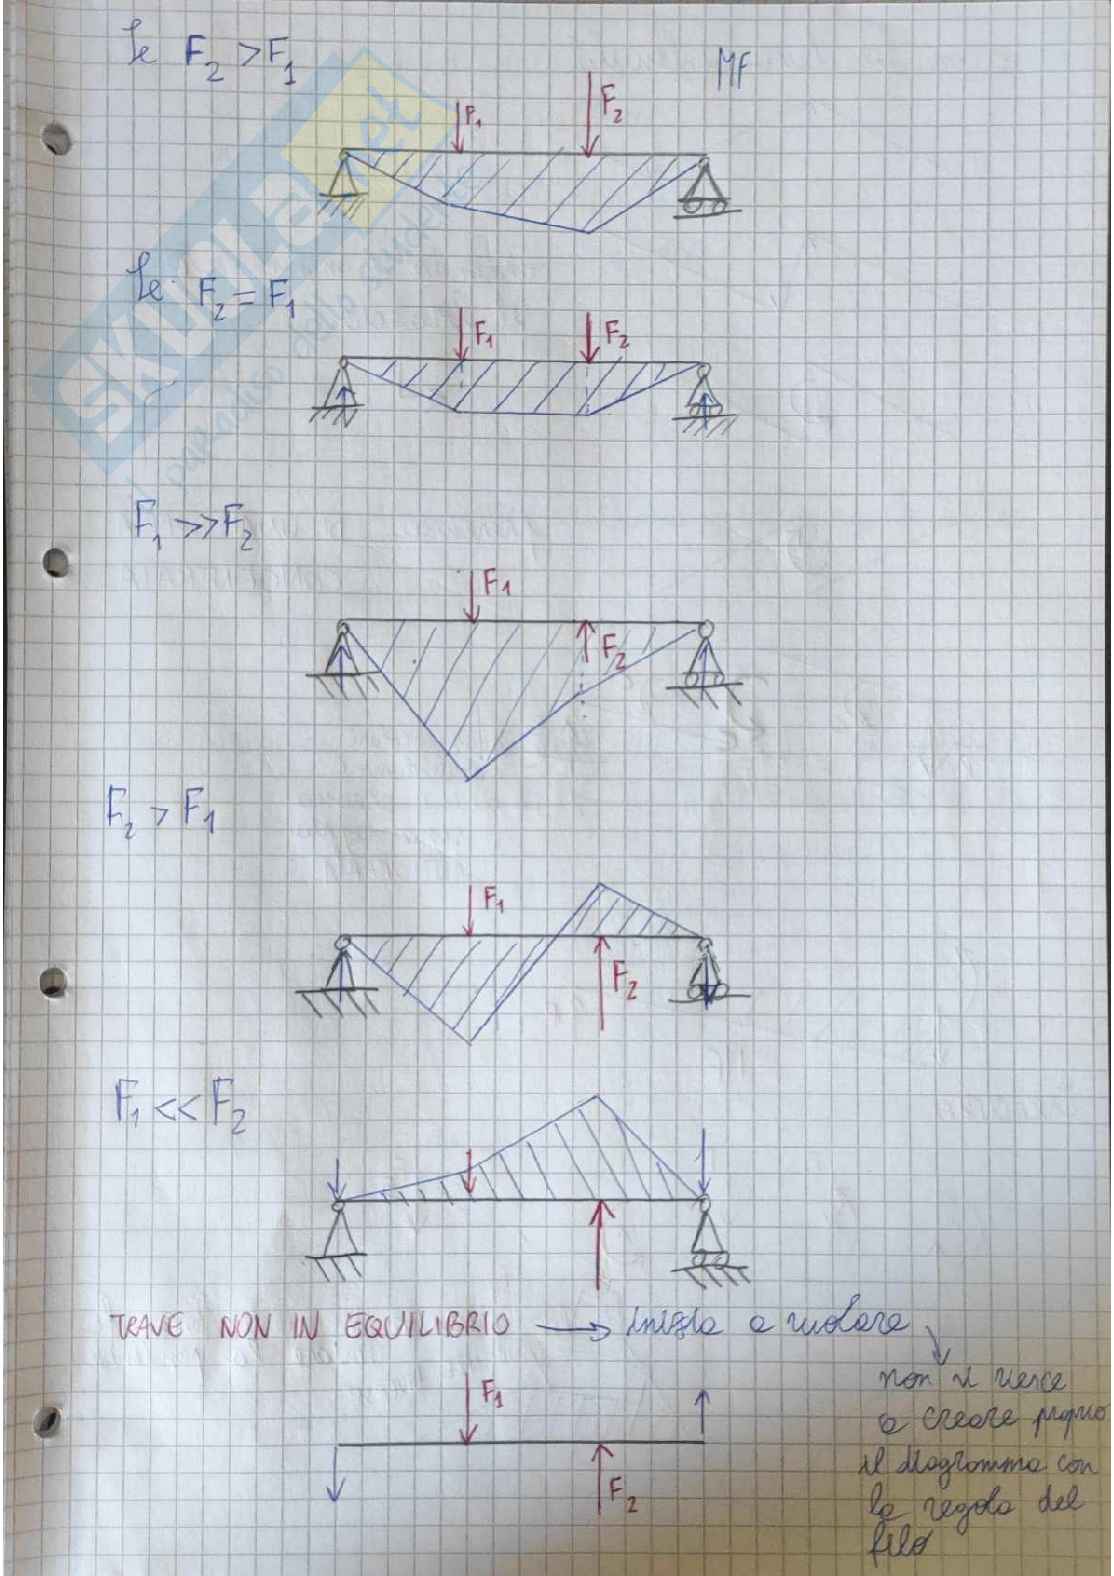 Se F2 > F1
MF
F1
F2
Se F2 = F1
F1
F2
F1 >> F2
F1
F2
F2 > F1
F1
F2
F1 << F2
TRAVE NON IN EQUILIBRIO → inizia a ruotare
non si riesce
a creare proprio
il diagramma con
la regola del
filo
F1
F2
SKUOLA.net